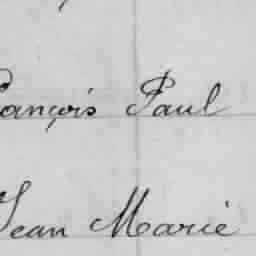 ançois Paul
Jean Marie